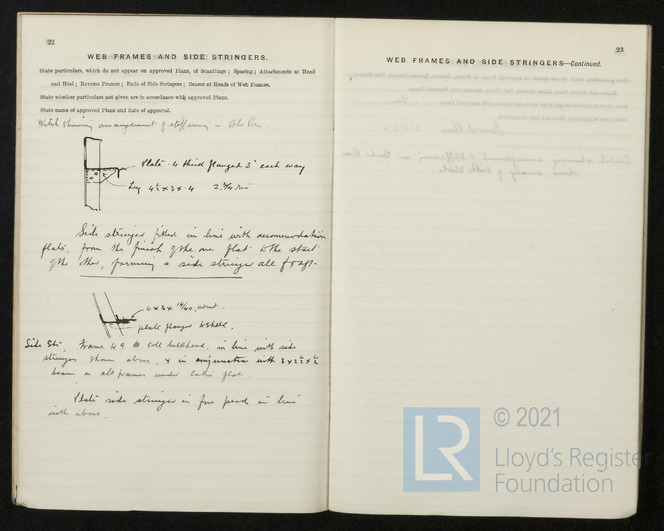 22
WEB FRAMES AND SIDE STRINGERS.
State particulars, which do not appear on approved Plans, of Scantlings; Spacing; Attachments at Head
and Heel; Reverse Frames; Ends of Side Stringers; Beams at Heads of Web Frames.
State whether particulars not given are in accordance with approved Plans.
State name of approved Plans and date of approval.
Sketch showing arrangement of stiffening in
Plate .4 thick flanged 3" each way
Lug 4½ x 3 x .4
Side stringer fitted in line with accommodation
flats, from the finish of the one flat to the start
of the other, forming a side stringer all f & aft.
6 x 3 x
plate flanged to shell.
Side Str. Frame 49 to coll bulkhead, in line with side
stringer shown above, & in conjunction with 3 x 2½ x
beam on alt frames under cabin flat
Plate side stringer in fore peak in line
with above.
23
WEB FRAMES AND SIDE STRINGERS—Continued.
LR
© 2021
Lloyd's Register
Foundation